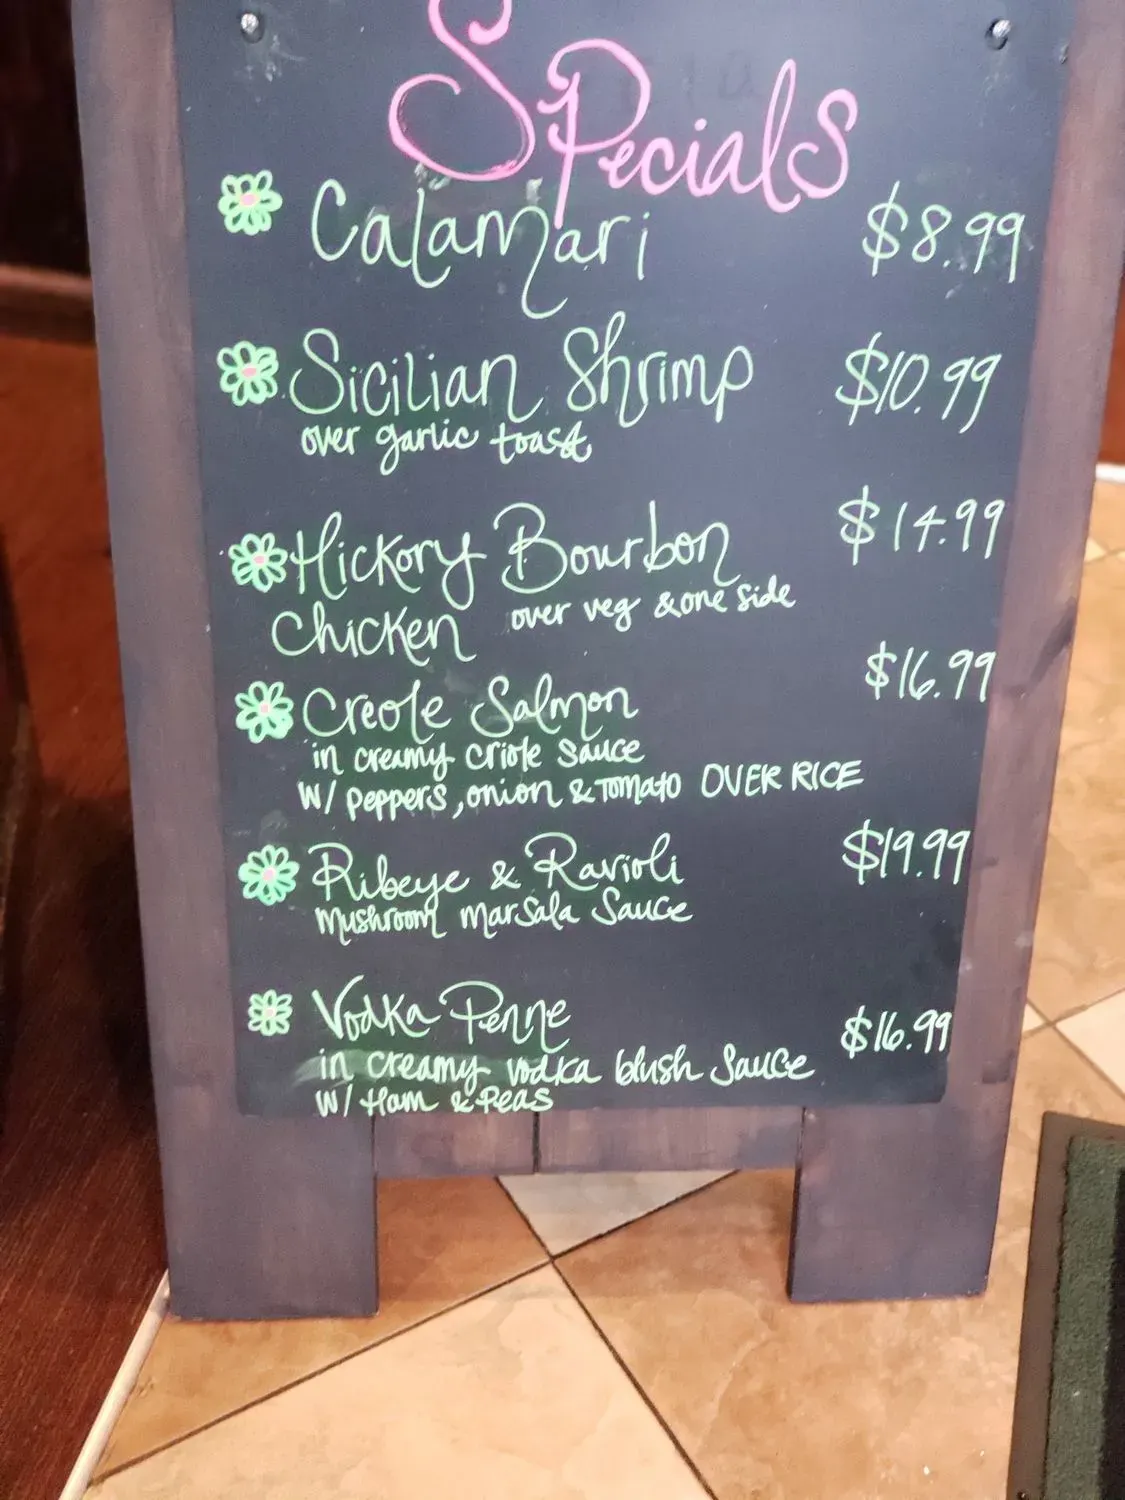 Specials
Calamari $8.99
Sicilian Shrimp $10.99
over garlic toast
Hickory Bourbon $14.99
Chicken over veg & one side
Creole Salmon $16.99
in creamy criole sauce
w/ peppers, onion & Tomato OVER RICE
Ribeye & Ravioli $19.99
Mushroom Marsala Sauce
Vodka Penne $16.99
in creamy vodka blush Sauce
w/ Ham & Peas